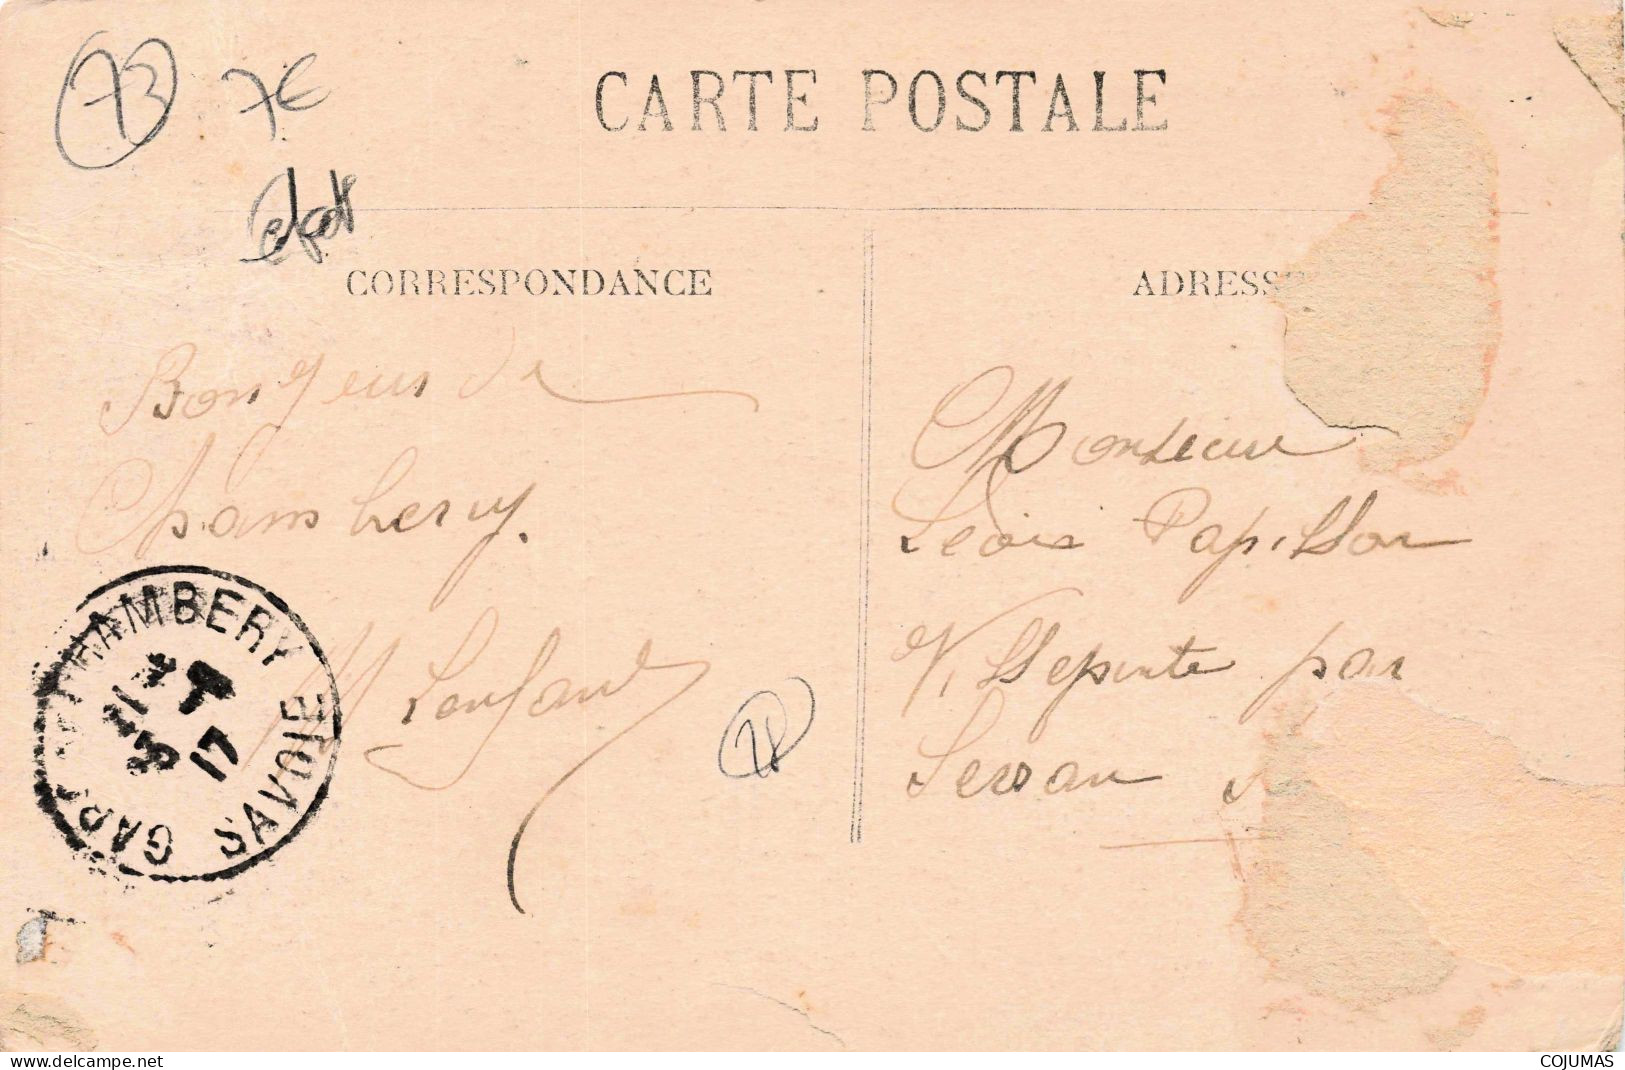 73 7€
CARTE POSTALE
CORRESPONDANCE
ADRESSE
Bonjour de
Chambery.
M Lenfant
Monsieur
Leon Papillon
Villepinte par
Sevran
GARE DE CHAMBERY
SAVOIE
21
17
www.delcampe.net
COJUMAS